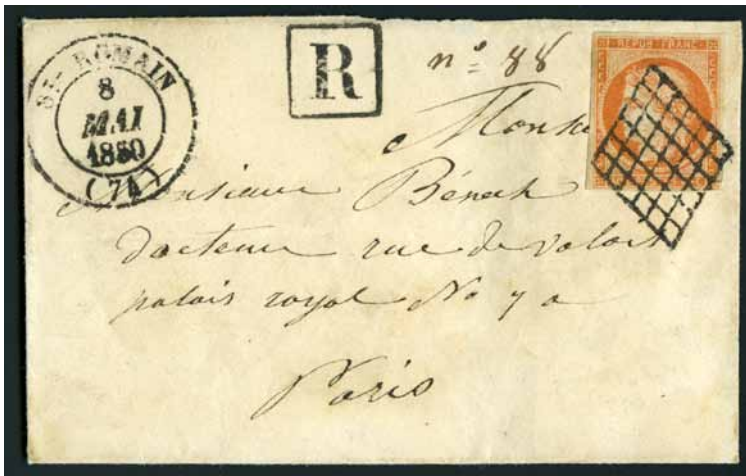 ST- ROMAIN
8
MAI
1850
(74)
R
n° 88
REPUB FRANC
Monsieur Bénech
docteur rue de valois
palais royal No 7 a
Paris